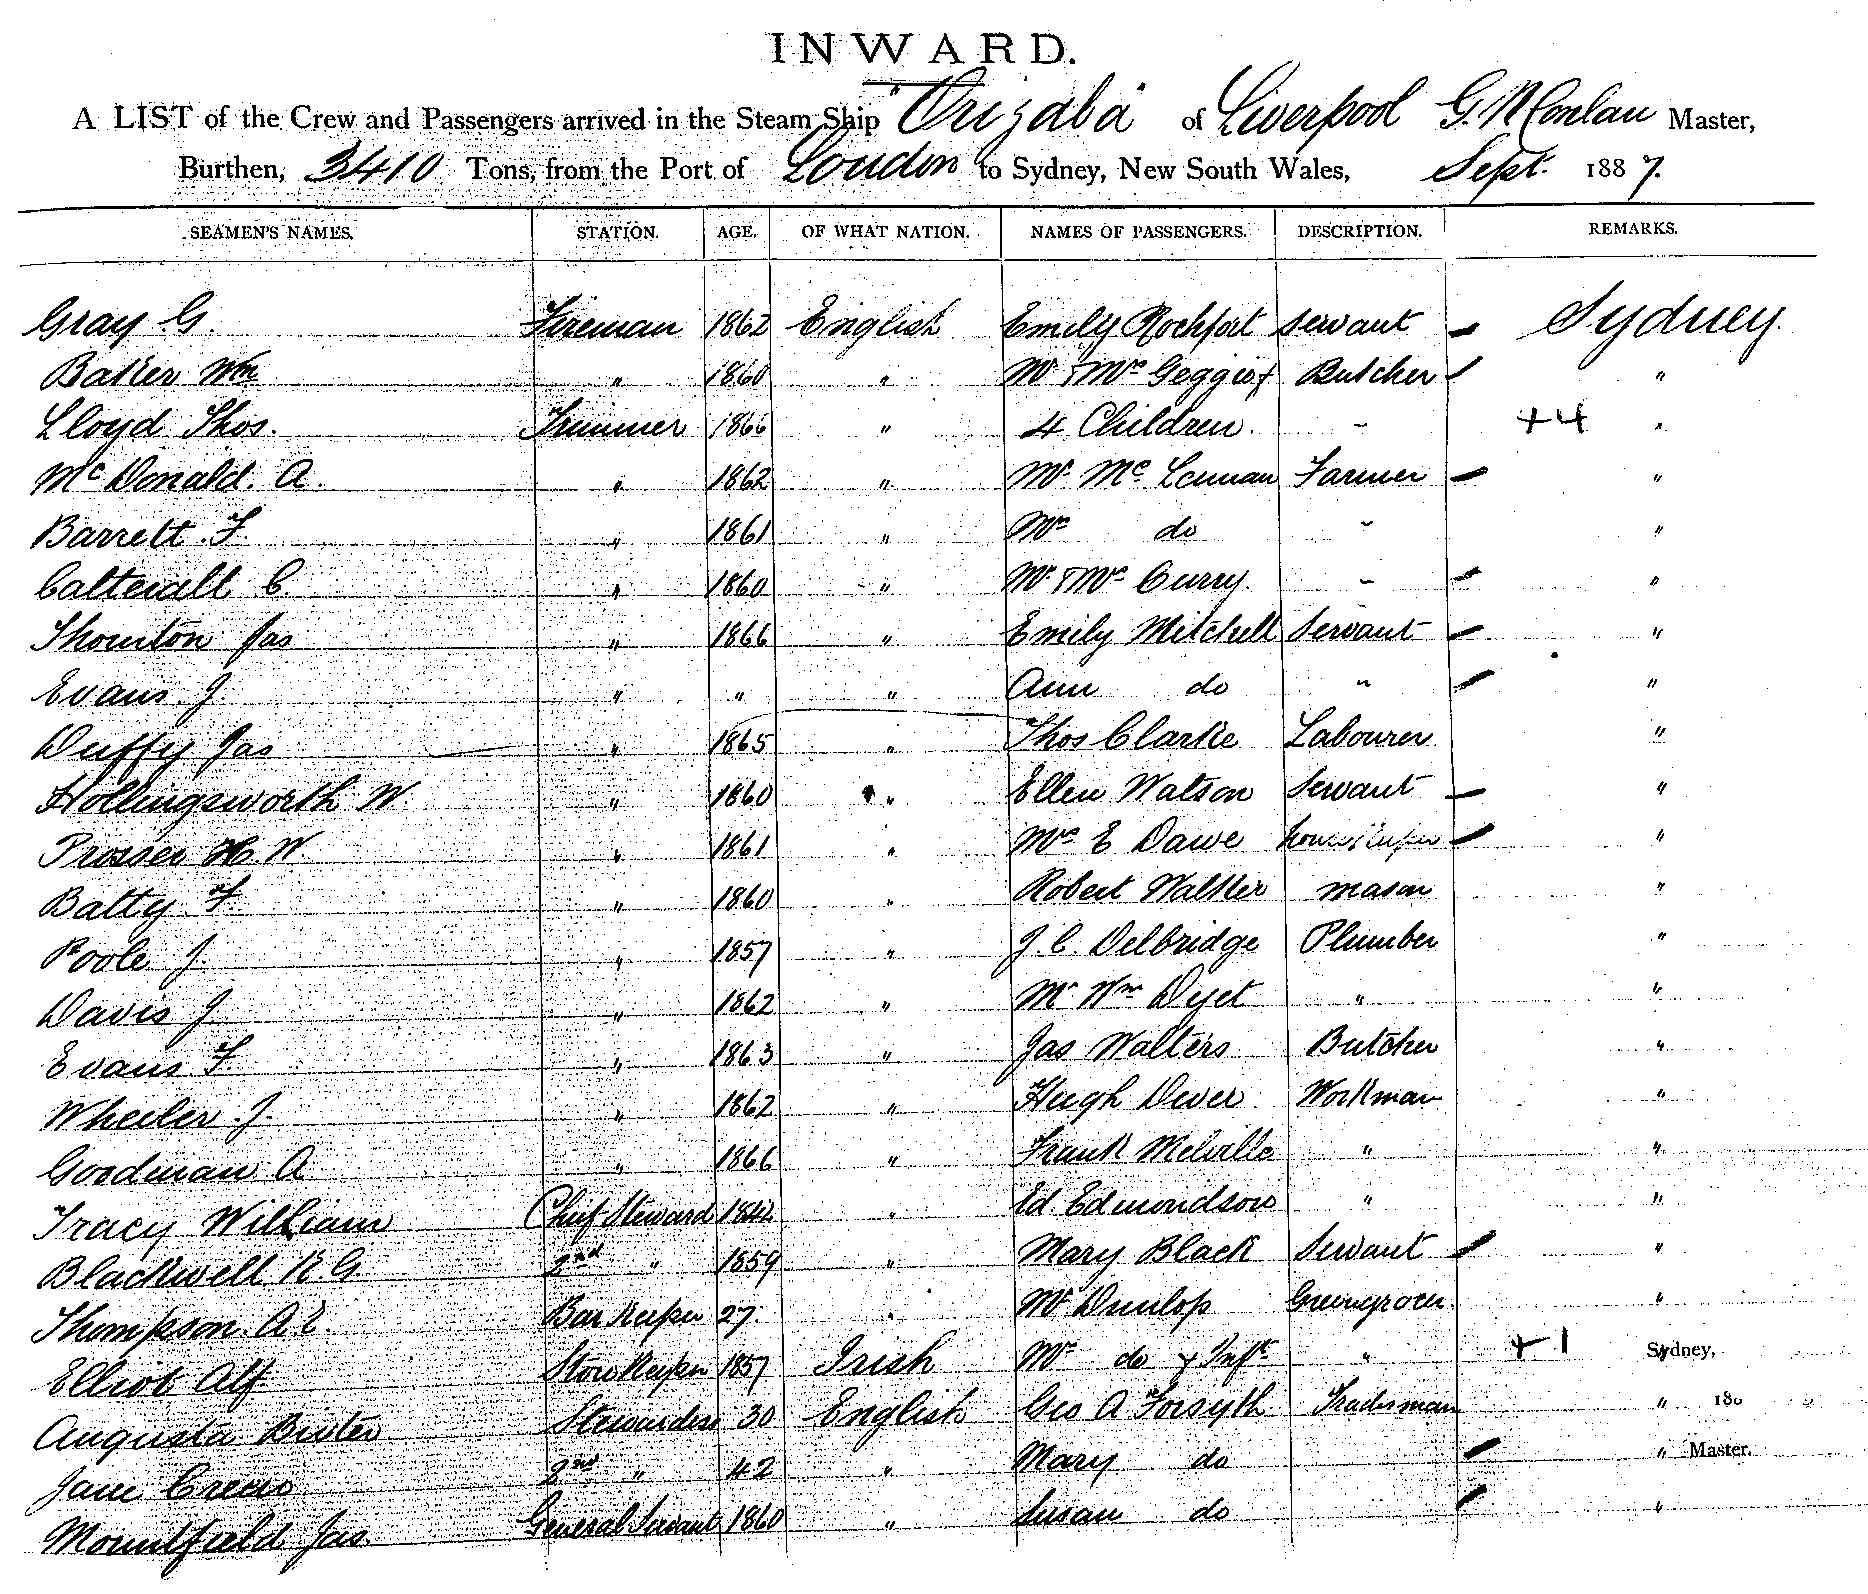 INWARD.
A LIST of the Crew and Passengers arrived in the Steam Ship "Orizaba" of Liverpool G. N Conlan Master,
Burthen, 3410 Tons, from the Port of London to Sydney, New South Wales, Sept. 1887.
SEAMEN'S NAMES. STATION. AGE. OF WHAT NATION. NAMES OF PASSENGERS. DESCRIPTION. REMARKS.
Gray G. Fireman 1862 English Emily Rochfort Servant Sydney.
Baker Wm " 1860 " Mr & Mrs Butcher "
Lloyd Thos. Trimmer 1866 " 4 Children. - +4 "
McDonald. A. " 1862 " Mr McLennan Farmer "
Barrett. F. " 1861 " Mrs do " "
Catterall C. " 1860 " Mr & Mrs Curry. - "
Thornton Jas " 1866 " Emily Mitchell Servant "
Evans. J. " " " Ann do " "
Duffy Jas " 1865 " Thos Clarke Labourer "
Hollingsworth W. " 1860 " Ellen Watson Servant "
Prosser H. W. " 1861 " Mrs E Dawe housekeeper "
Batty F. " 1860 " Robert Walker mason "
Poole J. " 1857 " J. C. Delbridge Plumber "
Davis J " 1862 " Mr Wm Dyet " "
Evans F " 1863 " Jas Walters Butcher "
Wheeler. J. " 1862 " Hugh Dwer Workman "
Goodman A " 1866 " Frank Melville " "
Tracy William Chief Steward 1842 " Ed. Edmondson " "
Blackwell R. G. 2nd " 1859 " Mary Black Servant "
Thompson. A. E. Bar Keeper 27. " Mr Dunlop Greengrocer. "
Elliot Alf Storekeeper 1857 Irish Mrs do & Inft " +1 " Sydney,
Augusta Stewardess 30 English Geo A Forsyth Tradesman " 188
Jane 2nd " 42 " Mary do " Master.
Mountfield Jas. General Servant 1860 " Susan do "